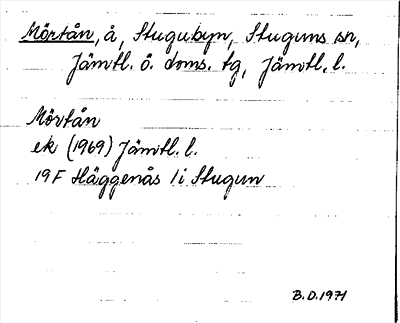 Mörtån, å, Stugubyn, Stuguns sn,
Jämtl. ö. doms. tg, Jämtl. l.
Mörtån
ek (1969) Jämtl. l.
19F Häggenås 1i Stugun
B.D.1971